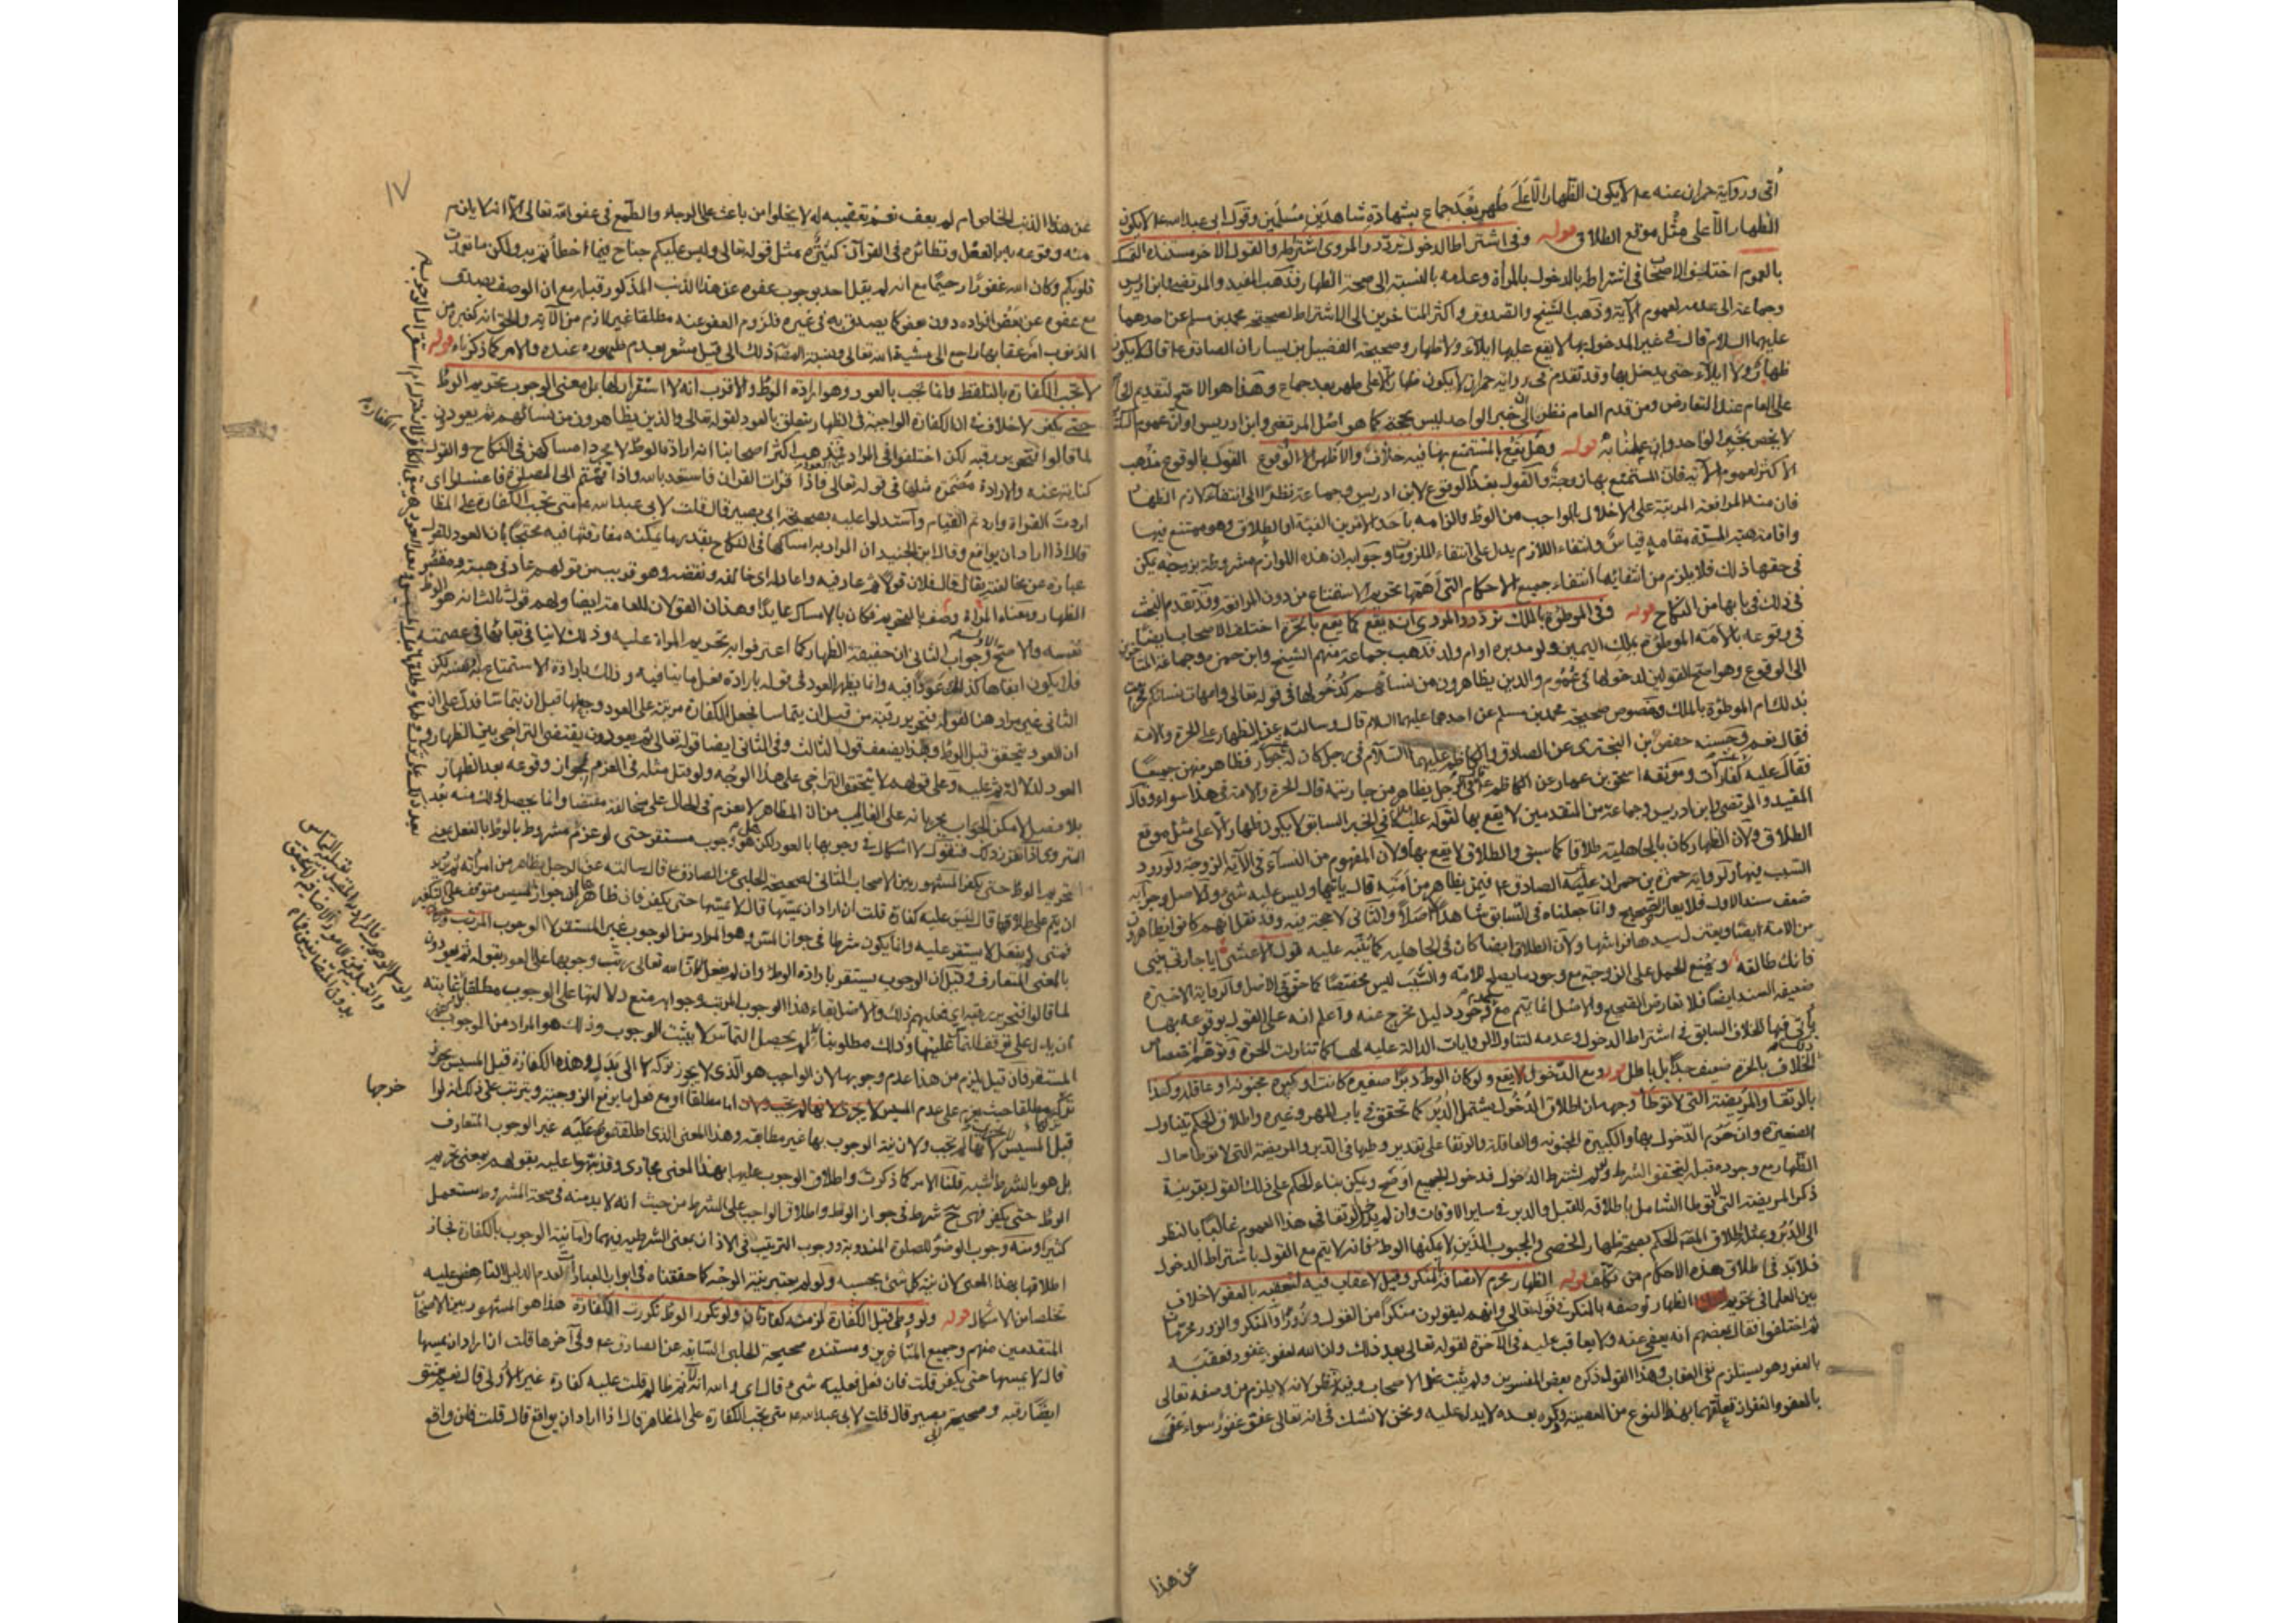 أتى ورواية حمران عنه ع لا يكون الظهار الا على طهر بغير جماع بشهادة شاهدين مسلمين وقول ابى عبد الله ع لا يكون
الظهار الا على مثل موقع الطلاق قوله وفى اشتراط الدخول تردد والمروى اشتراطه والقول الاخر مستنده التمسك
بالعموم اختلف الاصحاب فى اشتراط الدخول بالمرأة وعدمه بالنسبة الى صحة الظهار فذهب المفيد والمرتضى وابن ادريس
وجماعة الى عدمه لعموم الآية وذهب الشيخ والصدوق واكثر المتاخرين الى الاشتراط لصحيحة محمد بن مسلم عن احدهما
عليهما السلام قال فى غير المدخول بها لا يقع عليها ايلاء ولا ظهار وصحيحة الفضيل بن يسار ان الصادق ع قال لا يكون
ظهار ولا ايلاء حتى يدخل بها وقد تقدم فى رواية حمران لا يكون ظهار الا على طهر بغير جماع وهذا هو الاصح لتقديم الخاص
على العام عند التعارض ومن قدم العام نظر الى ان خبر الواحد ليس بحجة كما هو اصل المرتضى وابن ادريس او ان عموم الكتاب
لا يخص بخبر الواحد وان عملنا به قوله وهل يقع بالمستمتع بها فيه خلاف والاظهر الوقوع القول بالوقوع مذهب
الاكثر لعموم الآية فان المستمتع بها زوجة والقول بعدم الوقوع لابن ادريس وجماعة نظرا الى انتفاء لازم الظهار
فان منه المرافعة المرتبة على الاخلال بالواجب من الوطء والزامه باحد الامرين الفئة او الطلاق وهو ممتنع فيها
واقامة هبة المدة مقامه قياس وانتفاء اللازم يدل على انتفاء الملزوم وجوابه ان هذه اللوازم مشروطة بزوجة يمكن
فى حقها ذلك فلا يلزم من انتفائها انتفاء جميع الاحكام التى اهمها تحريم الاستمتاع من دون المرافعة وقد تقدم البحث
فى ذلك فى بابها من النكاح قوله وفى الموطوءة بالملك تردد والمروى انه يقع كما يقع بالحرة اختلف الاصحاب ايضا
فى وقوعه بالأمة الموطوءة بملك اليمين ولو مدبرة او ام ولد فذهب جماعة منهم الشيخ وابن حمزة وجماعة المتاخرين
الى الوقوع وهو اصح القولين لدخولها فى عموم والذين يظاهرون من نسائهم كدخولها فى قوله تعالى وامهات نسائكم فحرمت
بذلك ام الموطوءة بالملك وخصوص صحيحة محمد بن مسلم عن احدهما عليهما السلام قال وسالته عن الظهار على الحرة والامة
فقال نعم وحسنة حفص بن البخترى عن الصادق والكاظم عليهما السلام فى رجل كان له عشر جوار فظاهر منهن جميعا
فقال عليه عشر كفارات وموثقة اسحق بن عمار عن الكاظم ع فى الرجل يظاهر من جاريته قال الحرة والامة فى هذا سواء وذهب
المفيد والمرتضى وابن ادريس وجماعة من المتقدمين لا يقع بها لقوله ع كما فى الخبر السابق لا يكون ظهار الا على مثل موقع
الطلاق ولان الظهار كان بالجاهلية طلاقا كما سبق والطلاق لا يقع بها ولان المفهوم من النساء فى الآية الزوجة ولورود
السبب فيها ولرواية حمزة بن حمران عن الصادق ع فيمن يظاهر من امته قال ياتيها وليس عليه شئ ولاصل وجوابه
ضعف سند الاول فلا يعارض الصحيح وانما جعلناه فى السابق شاهدا لا اصلا والثانى لا حجة فيه وقد نقل انهم كانوا يظاهرون
من الامة ايضا ويعتزل سيدها فراشها ولان الطلاق ايضا كان فى الجاهلية كما ينبه عليه قول الاعشى ايا جارتى بينى
فانك طالقه ونمنع الحمل على الزوجة مع وجود ما يصلح للامة والسبب ليس مخصصا كما حقق فى الاصل والرواية الاخيرة
ضعيفة السند ايضا فلا تعارض الصحيح والاصل انما يتم مع عدم وجود دليل مخرج عنه واعلم انه على القول بوقوعه بها
يأتى فيها الخلاف السابق فى اشتراط الدخول وعدمه لتناول الروايات الدالة عليه لها كما تناولت الحرة وتوهم اختصاص
الخلاف بالحرة ضعيف جدا بل باطل قوله ومع الدخول يقع ولو كان الوطء دبرا صغيرة كانت او كبيرة مجنونة او عاقلة وكذا
بالرتقاء والمريضة التى لا توطأ وجهه ان اطلاق الدخول يشتمل الدبر كما تحقق فى باب المهر وغيره واطلاق الحكم يتناول
الصغيرة وان حرم الدخول بها والكبيرة المجنونة والعاقلة والرتقاء على تقدير وطيها فى الدبر والمريضة التى لا توطأ حال
الظهار مع وجوده قبله لتحقق الشرط ولو لم نشترط الدخول فدخول الجميع اوضح ويمكن بناء الحكم على ذلك القول بقرينة
ذكر المريضة التى لا توطأ الشامل باطلاقه للقبل والدبر فى ساير الاوقات وان لم يدخل الرتقاء فى هذا العموم غالبا بالنظر
الى الدبر وعند اطلاق المصنف الحكم بصحة ظهار الخصى والمجبوب الذين لا يمكنهما الوطء فانه لا يتم مع القول باشتراط الدخول
فلا بد فى اطلاق هذه الاحكام من تكلف قوله الظهار محرم لاتصافه بالمنكر وقيل لا عقاب فيه لتعقبه بالعفو لا خلاف
بين العلماء فى تحريم الظهار لوصفه بالمنكر فى قوله تعالى وانهم ليقولون منكرا من القول وزورا والمنكر والزور محرمان
ثم اختلفوا فقال بعضهم انه يعفى عنه ولا يعاقب عليه فى الآخرة لقوله تعالى بعد ذلك وان الله لعفو غفور فعقبه
بالعفو وهو يستلزم نفى العقاب وهذا القول ذكره بعض المفسرين ولم يثبت عن الاصحاب وفيه نظر لانه لا يلزم من وصفه تعالى
بالعفو والغفران تعلقهما بهذا النوع من المعصية وذكره بعده لا يدل عليه ونحن لا نشك فى ان الله تعالى عفو غفور سواء عفى
عن هذا
١٧
عن هذا الذنب الخاص ام لم يعف نعم تعقيبه به لا يخلوا من باعث على الرجاء والطمع فى عفو الله تعالى الا انه لا يلزم
منه وقوعه به بالفعل ونظائره فى القرآن كثيرة مثل قوله تعالى وليس عليكم جناح فيما اخطأتم به ولكن ما تعمدت
قلوبكم وكان الله غفورا رحيما مع انه لم يقل احد بوجوب عفوه عن هذا الذنب المذكور قبله مع ان الوصف يصدق
مع عفوه عن بعض افراده دون بعض كما يصدق به فى غيره فلزوم العفو عنه مطلقا غير لازم من الآية والحق انه كغيره من
الذنوب امر عقابها راجع الى مشية الله تعالى ونسبة المصنف ذلك الى قيل مشعر بعدم ظهوره عنده والامر كما ذكرناه قوله
لا تجب الكفارة بالتلفظ وانما تجب بالعود وهو ارادة الوطء والاقرب انه لا استقرار لها بل معنى الوجوب تحريم الوطء
حتى يكفر لا خلاف فى ان الكفارة الواجبة فى الظهار يتعلق بالعود لقوله تعالى والذين يظاهرون من نسائهم ثم يعودون
لما قالوا فتحرير رقبة لكن اختلفوا فى المراد من العود فذهب اكثر اصحابنا انه ارادة الوطء لا مجرد امساكهن فى النكاح والقول
كناية عنه والارادة مضمرة مثلها فى قوله تعالى فاذا قرأت القرآن فاستعذ بالله واذا قمتم الى الصلوة فاغسلوا اى
اردت القراءة واردتم القيام واستدلوا عليه بصحيحة ابى بصير قال قلت لابى عبد الله ع متى تجب الكفارة على المظاهر
قال اذا اراد ان يواقع وقال ابن الجنيد ان المراد به امساكها فى النكاح بقدر ما يمكنه مفارقتها فيه محتجا بان العود للقول
عبارة عن مخالفته يقال قال فلان قولا ثم عاد فيه وعاد له اى خالفه ونقضه وهو قريب من قولهم عاد فى هبته ومقتضى
الظهار ومعناه المرأة وصف بالتحريم فكان بالامساك عايدا وهذان القولان للعامة ايضا ولهم قول ثالث انه هو الوطء
نفسه والاصح الاول وجواب الثانى ان حقيقة الظهار كما اعترفوا به تحريم المرأة عليه وذلك لا ينافى بقائها فى عصمته
فلا يكون ابقاها كذلك عودا فيه وانما يظهر العود فى قوله بارادة فعل ما ينافيه وذلك بارادة الاستمتاع
الثانى غير مراد هنا لقوله فتحرير رقبة من قبل ان يتماسا فجعل الكفارة مرتبة على العود وجعلها قبل ان يتماسا فدل على ان
ان العود يتحقق قبل الوطء وبهذا يضعف قول الثالث وفى الثانى ايضا قوله تعالى ثم يعودون يقتضى التراخى بين الظهار و
العود لدلالة ثم عليه وعلى قولهم لا يتحقق التراخى على هذا الوجه ولو قيل مثله فى العزم لجواز وقوعه بعد الظهار
بلا فصل لامكن الجواب بجريانه على الغالب من ان المظاهر لا يعزم فى الحال على مخالفة مقتضاه وانما يحصل ذلك منه بعد
التروى اذا تقرر ذلك فنقول لا اشكال فى وجوبها بالعود لكن هل هو وجوب مستقر حتى لو عزم مشروط بالوطء بالفعل بمعنى
تحريم الوطء حتى يكفر المشهور بين الاصحاب الثانى لصحيحة الحلبى عن الصادق ع قال سالته عن الرجل يظاهر من امرأته ثم يريد
ان يتم على طلاقها قال ليس عليه كفارة قلت ان اراد ان يمسها قال لا يمسها حتى يكفر فان ظاهرها ان جواز المسيس متوقف على التكفير
فمتى لم يفعل لا يستقر عليه وانما يكون شرطا فى جواز المس وهو المراد من الوجوب غير المستقر لا الوجوب المترتب
بالمعنى المتعارف وقيل ان الوجوب يستقر بارادة الوطء وان لم يفعل لان الله تعالى رتب وجوبها على العود بقوله ثم يعودون
لما قالوا فتحرير رقبة اى فعليهم ذلك والاصل بقاء هذا الوجوب المرتب وجوابه منع دلالتها على الوجوب مطلقا غايته
ان يدل على توقف التماس عليها وذلك مطلوبنا لم يحصل التماس لا يثبت الوجوب وذلك هو المراد من الوجوب
المستقر فان قيل يلزم من هذا عدم وجوبها لان الواجب هو الذى لا يجوز تركه لا الى بدل وهذه الكفارة قبل المسيس يجوز
تركها مطلقا حيث يعزم على عدم المسيس اما مطلقا او مع فعل ما يرفع الزوجية ويترتب على ذلك انه لو اخرجها
قبل المسيس لا تجزى لانها لم تجب ولان نية الوجوب بها غير مطابقة وهذا المعنى الذى اطلقتموه عليه غير الوجوب المتعارف
بل هو بالشرط اشبه قلنا الامر كما ذكرت واطلاق الوجوب عليها بهذا المعنى مجازى وقد نبهوا عليه بقولهم بمعنى تحريم
الوطء حتى يكفر فهى ح شرط فى جواز الوطء واطلاق الواجب على الشرط من حيث انه لا بد منه فى صحة المشروط مستعمل
كثيرا ومنه وجوب الوضوء للصلوة المندوبة ووجوب الترتيب فى الاذان بمعنى الشرطية فيهما واما نية الوجوب بالكفارة فجاز
اطلاقها بهذا المعنى لان نية كل شئ بحسبه ولو لم يعتبر نية الوجه كما حققناه فى ابواب العبادات لعدم الدليل الناهض عليه
تخلصنا من الاشكال قوله ولو وطئ قبل الكفارة لزمته كفارتان ولو تكرر الوطء تكررت الكفارة هذا هو المشهور بين الاصحاب
المتقدمين منهم وجميع المتاخرين ومستنده صحيحة الحلبى السابقة عن الصادق ع وفى آخرها قلت ان اراد ان يمسها
قال لا يمسها حتى يكفر قلت فان فعل فعليه شئ قال اى والله انه لآثم ظالم قلت عليه كفارة غير الاولى قال نعم يعتق
ايضا رقبة وصحيحة ابى بصير قال قلت لابى عبد الله ع متى تجب الكفارة على المظاهر قال اذا اراد ان يواقع قال قلت فان واقع
الكفارة
خرجها